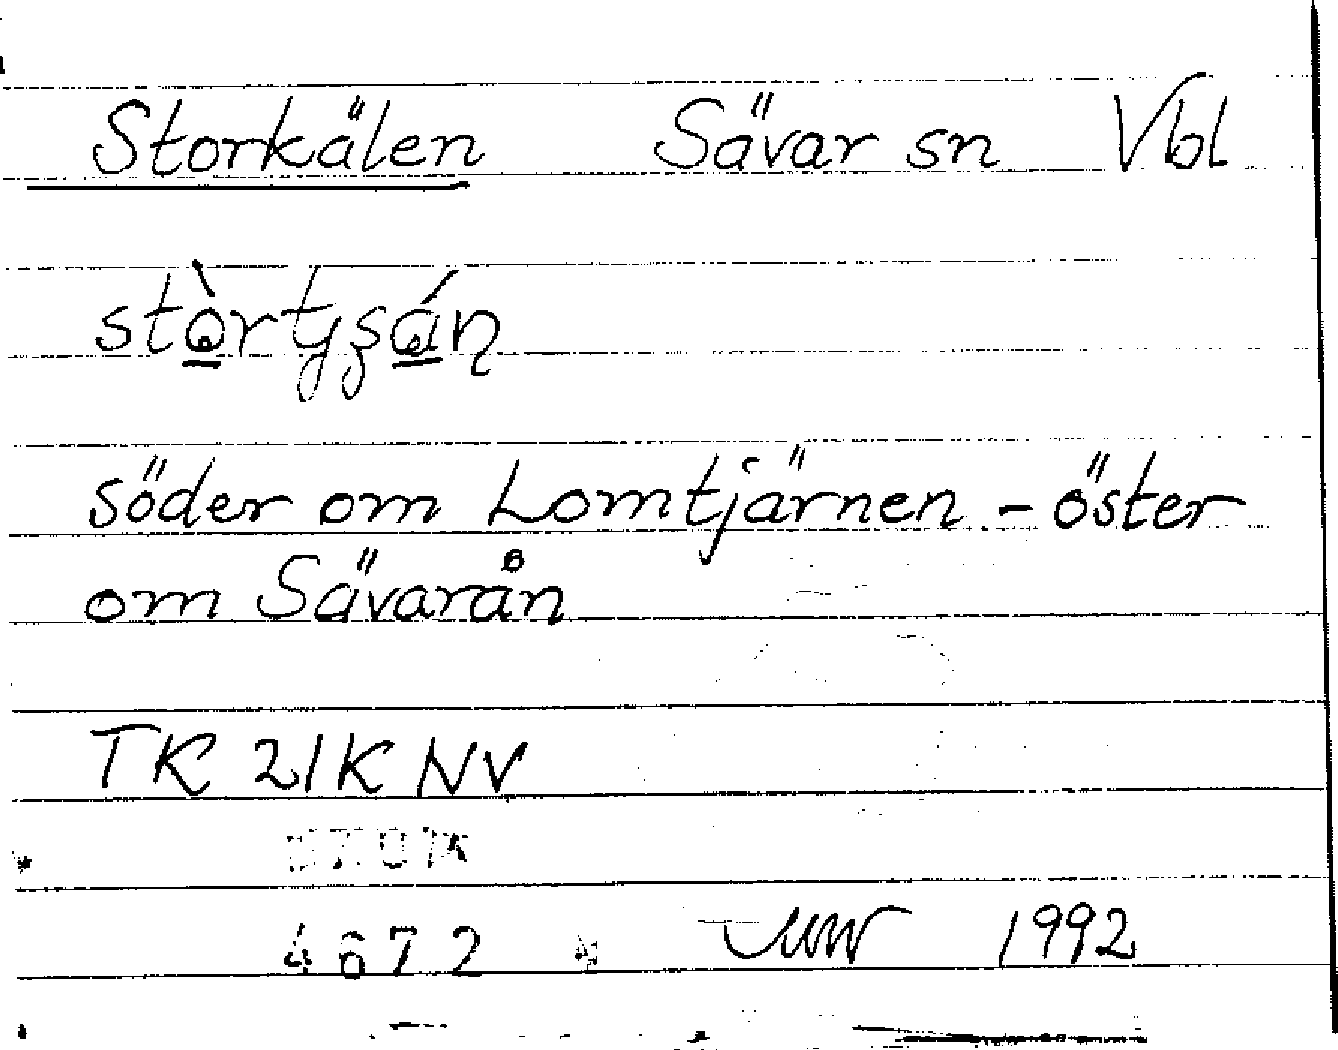 Storkälen Sävar sn Vbl
söder om Lomtjärnen - öster
om Sävarån
TK 21K NV
4672 1992